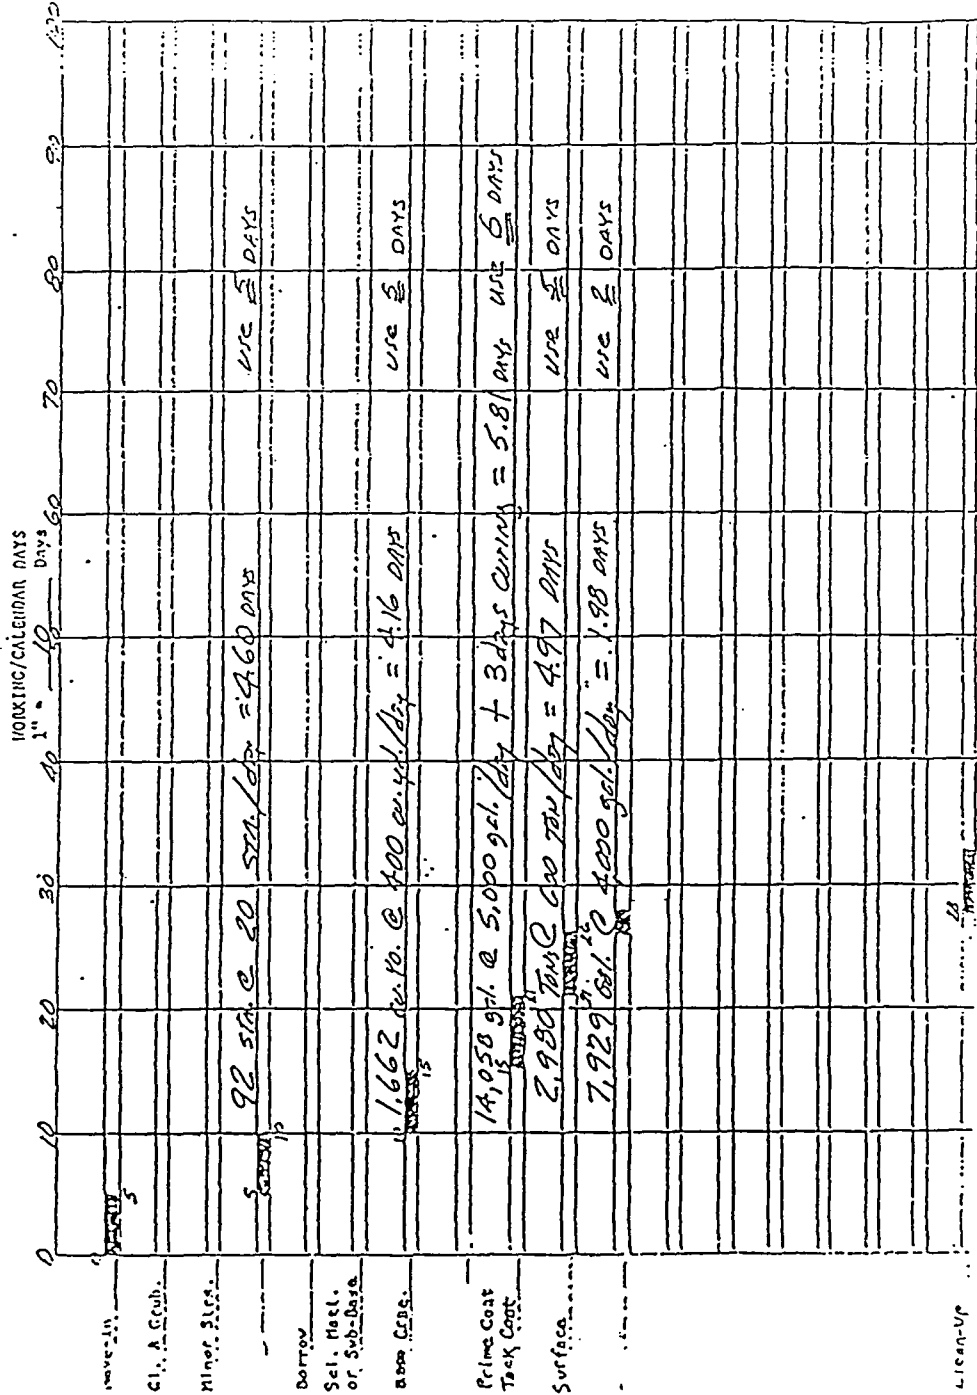 WORKING/CALENDAR DAYS
1" = 10 Days
0 10 20 30 40 50 60 70 80 90 100
Move-In
5
Cl. & Grub.
Minor Strs.
92 STA. @ 20 STA./day = 4.60 DAYS USE 5 DAYS
5 10
Borrow
Sel. Matl.
or Sub-Base
1,662 cu. yd. @ 400 cu. yd./day = 4.16 DAYS USE 5 DAYS
Base Crse.
15
14,058 gal. @ 5,000 gal./day + 3 days curing = 5.81 DAYS USE 6 DAYS
Prime Coat
Tack Coat
15 21
2,980 Tons @ 600 TON/day = 4.97 DAYS USE 5 DAYS
Surface
21 26
7,929 Gal. @ 4,000 gal./day = 1.98 DAYS USE 2 DAYS
28
Clean-Up